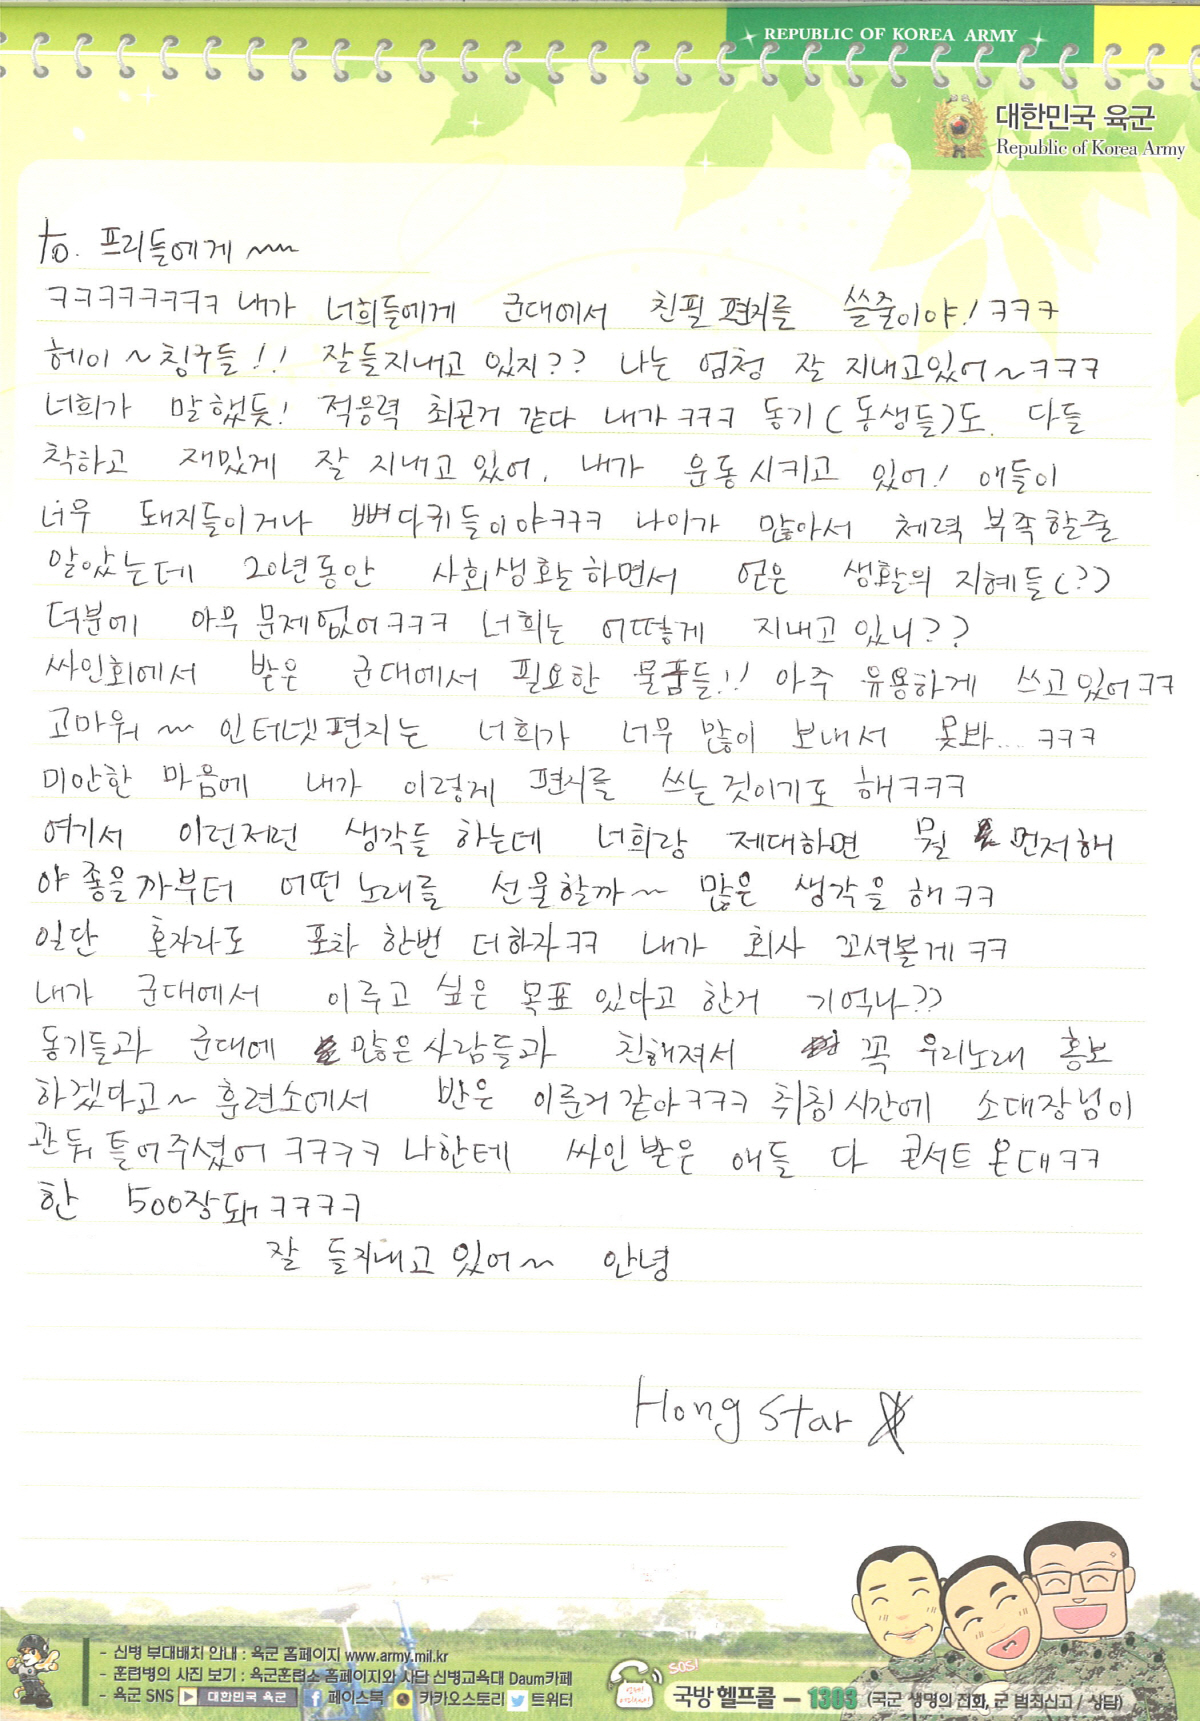 REPUBLIC OF KOREA ARMY
대한민국 육군
Republic of Korea Army
to. 프리들에게 ~~
ㅋㅋㅋㅋㅋㅋㅋㅋ 내가 너희들에게 군대에서 친필 편지를 쓸줄이야! ㅋㅋㅋ
헤이~칭구들!! 잘들지내고 있지?? 나는 엄청 잘 지내고있어~ㅋㅋㅋ
너희가 말했듯! 적응력 최곤거 같다 내가ㅋㅋㅋ 동기(동생들)도. 다들
착하고 재밌게 잘 지내고 있어. 내가 운동시키고 있어! 애들이
너무 돼지들이거나 뼈다귀들이야ㅋㅋㅋ 나이가 많아서 체력 부족할줄
알았는데 20년동안 사회생활하면서 얻은 생활의 지혜들(?)
덕분에 아무 문제없어ㅋㅋㅋ 너희는 어떻게 지내고 있니??
싸인회에서 받은 군대에서 필요한 물품들!! 아주 유용하게 쓰고있어ㅋㅋ
고마워~ 인터넷편지는 너희가 너무 많이 보내서 못봐... ㅋㅋㅋ
미안한 마음에 내가 이렇게 편지를 쓰는것이기도 해ㅋㅋㅋ
여기서 이런저런 생각들 하는데 너희랑 제대하면 뭘 먼저해
야 좋을까부터 어떤노래를 선물할까~ 많은 생각을 해ㅋㅋ
일단 혼자라도 포차 한번 더하자ㅋㅋ 내가 회사 꼬셔볼게ㅋㅋ
내가 군대에서 이루고 싶은 목표 있다고 한거 기억나??
동기들과 군대에 많은사람들과 친해져서 꼭 우리노래 홍보
하겠다고~ 훈련소에서 반은 이룬거같아ㅋㅋㅋ 취침시간에 소대장님이
관둬 틀어주셨어 ㅋㅋㅋㅋ 나한테 싸인받은 애들 다 콘서트온대ㅋㅋ
한 500장돼ㅋㅋㅋㅋ
잘 들지내고 있어~ 안녕
Hong Star
- 신병 부대배치 안내 : 육군 홈페이지 www.army.mil.kr
- 훈련병의 사진 보기 : 육군훈련소 홈페이지와 사단 신병교육대 Daum카페
- 육군 SNS 대한민국 육군 페이스북 카카오스토리 트위터
SOS!
국방헬프콜 - 1303 (국군 생명의 전화, 군 범죄신고 / 상담)